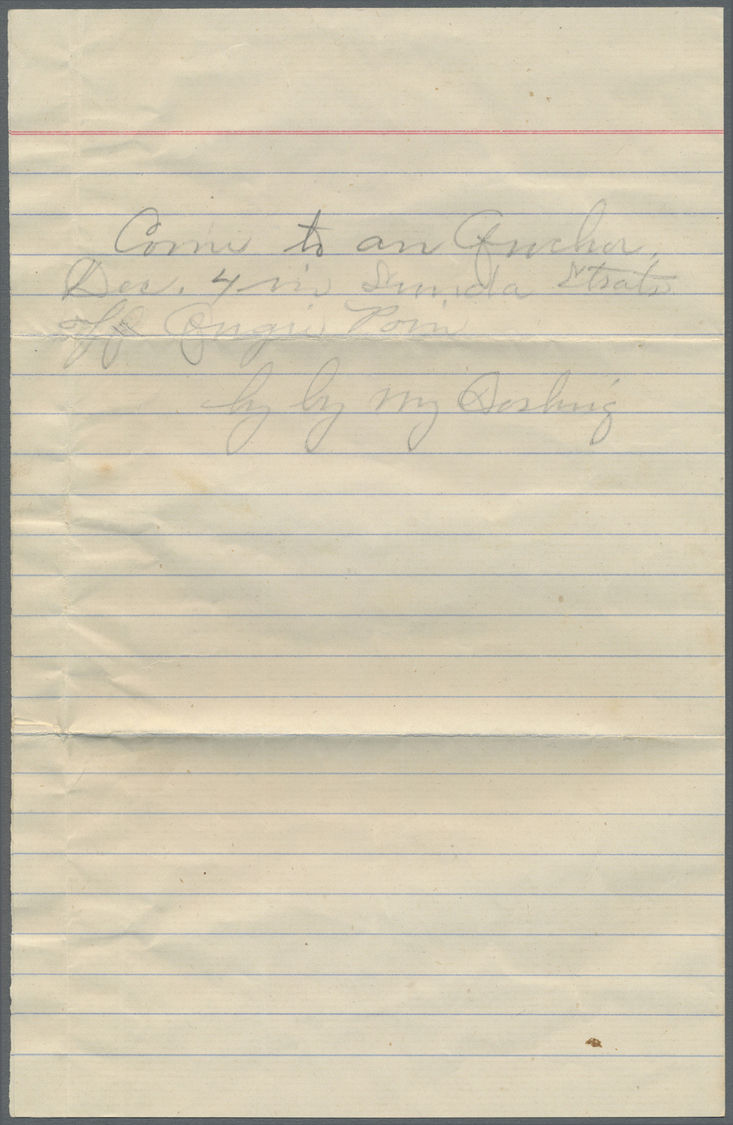 Come to an Anchor,
Dec. 4 in Sunda Strats
off Angir Poin
by by my Darling